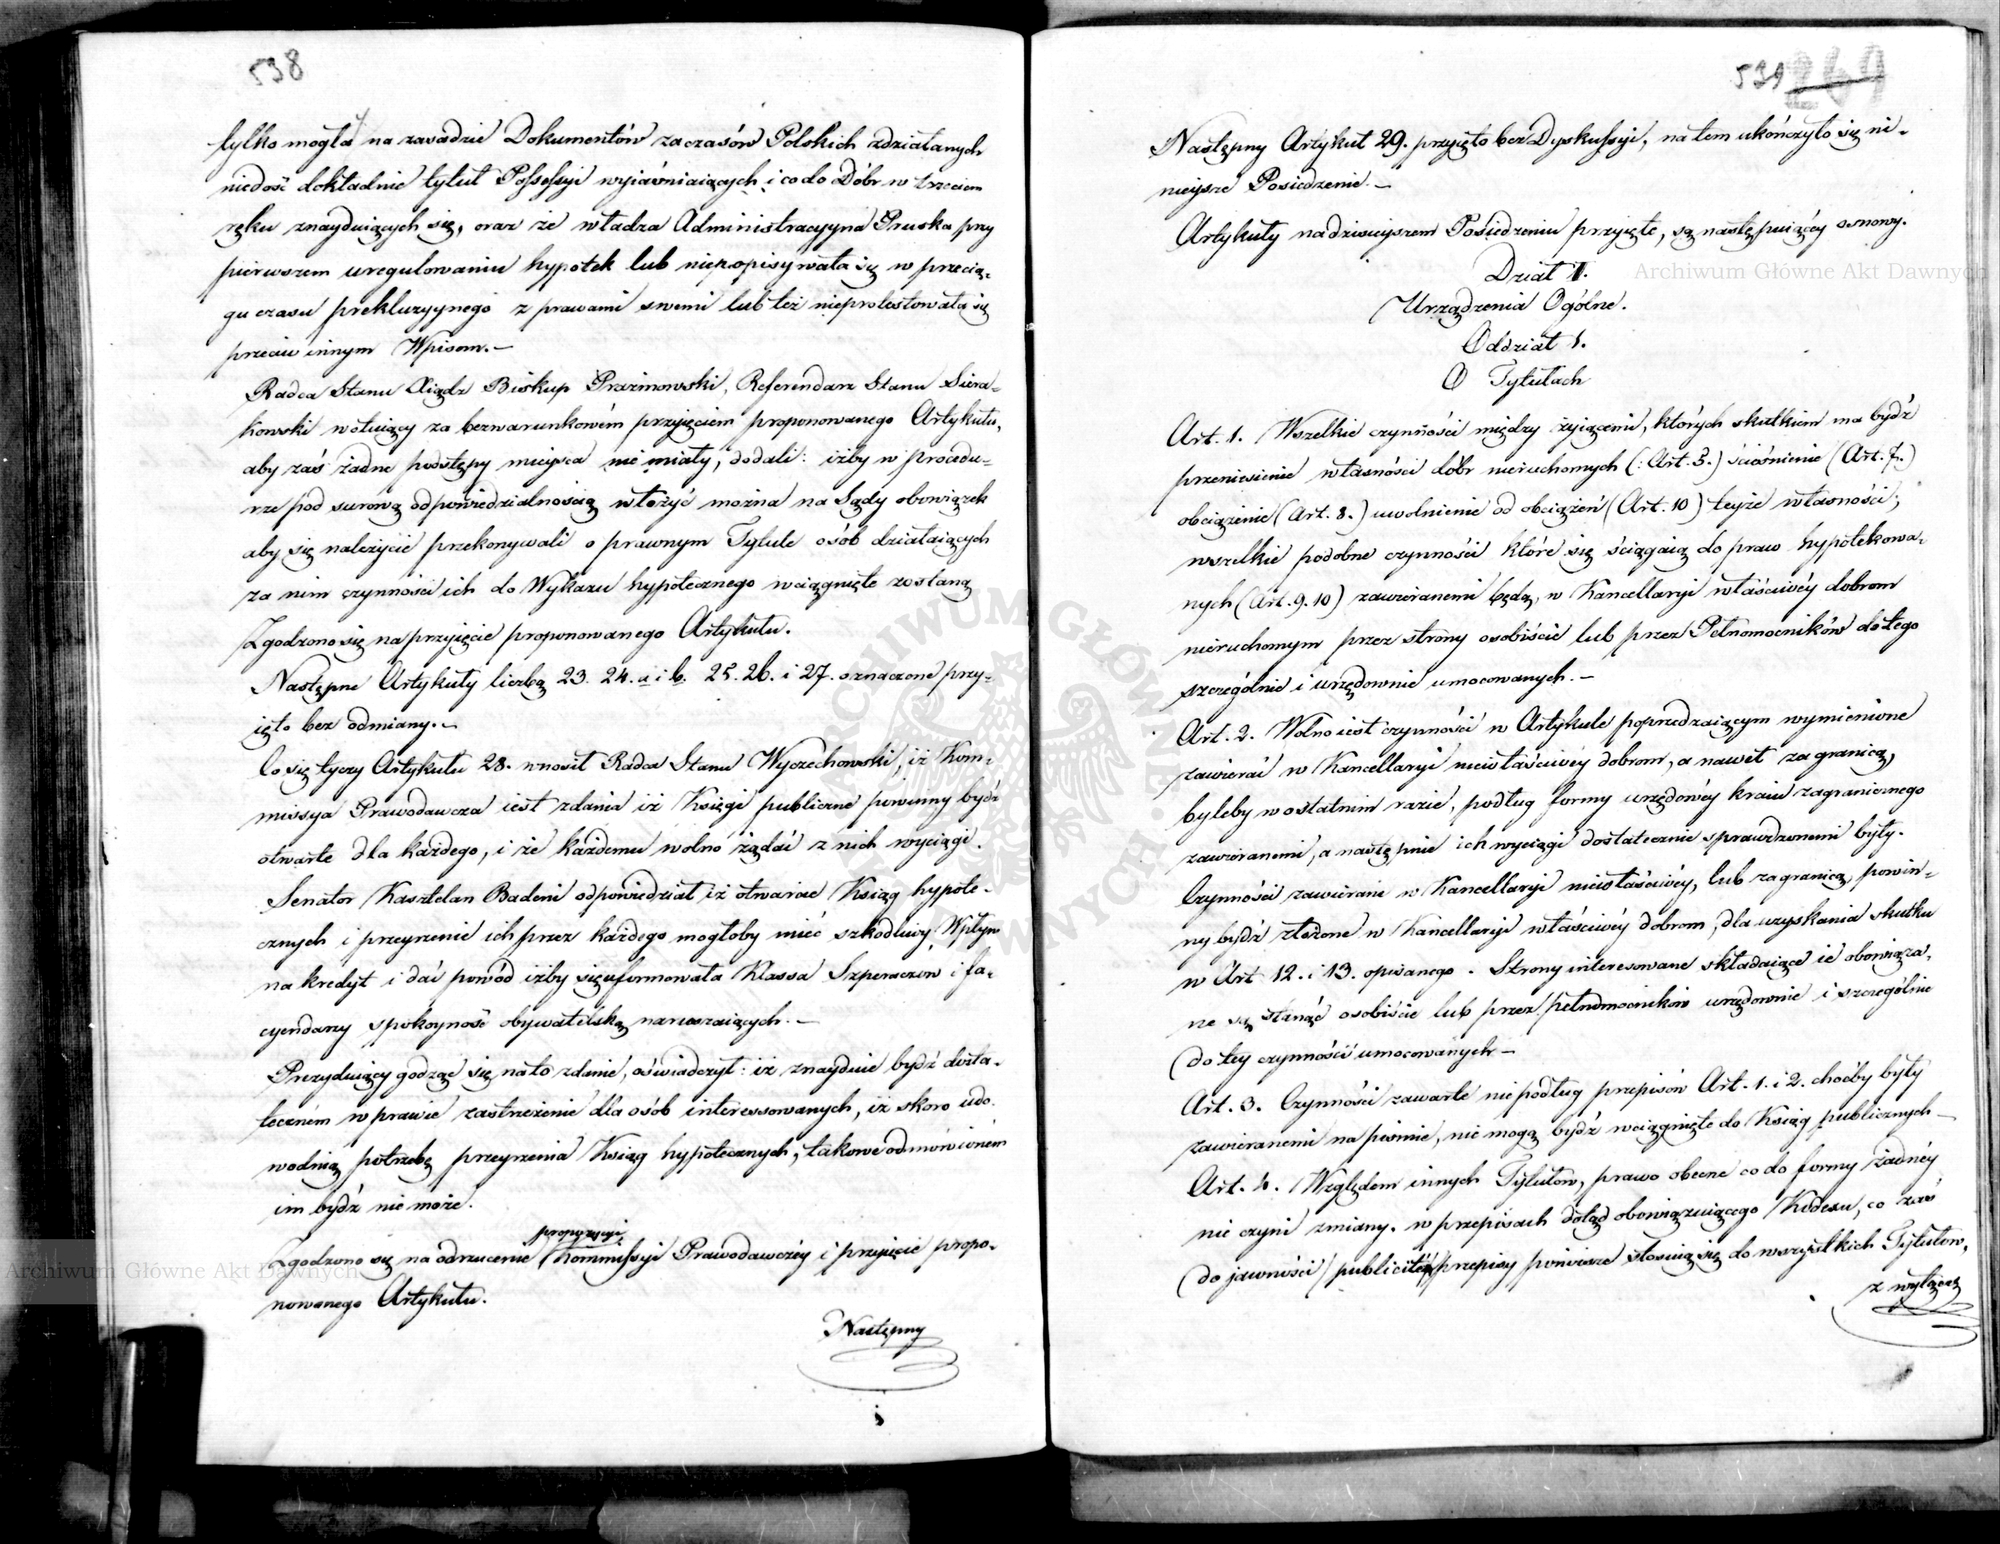 538
tylko mogła na zasadzie Dokumentów za czasów Polskich zdziałanych
niedość dokładnie tytuł Possessyi wyiaśniaiących i co do Dóbr w trzeciem
ręku znayduiących się, oraz że władza Administracyyna Pruska przy
pierwszem uregulowaniu hypotek lub niezapisywała się w przecią-
gu czasu prekluzyynego z prawami swemi lub też nieprotestowała się
przeciw innym Wpisom.-
Radca Stanu Xiądz Biskup Prażmowski, Referendarz Stanu Siera-
kowski wotuiący za bezwarunkowém przyięciem proponowanego Artykułu,
aby zaś żadne podstępy mieysca nie miały, dodali: iżby w procedu-
rze pod surową odpowiedzialnością włożyć można na Sądy obowiązek
aby się należycie przekonywali o prawnym Tytule osób działaiących
za nim czynności ich do Wykazu hypotecznego wciągnięte zostaną
Zgodzono się na przyięcie proponowanego Artykułu.
Następne Artykuły liczbą 23. 24. a i b. 25. 26. i 27. oznaczone przy-
ięto bez odmiany.-
Co się tyczy Artykułu 28. wnosił Radca Stanu Wyczechowski, iż Kom-
missya Prawodawcza iest zdania iż Księgi publiczne powinny bydź
otwarte dla każdego, i że każdemu wolno żądać z nich wyciągi.
Senator Kasztelan Badeni odpowiedział iż otwarcie Ksiąg hypote-
cznych i przeyrzenie ich przez każdego mogłoby mieć szkodliwy Wpływ
na kredyt i dać powód iżby się uformowała Klassa Szperaczow i fa-
cyendarzy spokoyność obywatelską naruszaiących.-
Prezyduiący godząc się na to zdanie, oświadczył: iż znayduie bydź dosta-
teczném w prawie zastrzeżenie dla osób interessowanych, iż skoro udo-
wodnią potrzebę przeyrzenia Ksiąg hypotecznych, takowe odmówioném
im bydź nie może.
propozycyi
Zgodzono się na odrzucenie Kommissyi Prawodawczéy i przyięcie propo-
nowanego Artykułu.
Następny
539 269
Następny Artykuł 29. przyięto bez Dyskussyi, na tem ukończyło się ni-
nieysze Posiedzenie.-
Artykuły na dzisieyszem Posiedzeniu przyięte, są następuiącéy osnowy.
Dział I.
Urządzenia Ogólne.
Oddział 1.
O Tytułach
Art. 1. Wszelkie czynności między żyiącemi, których skutkiem ma bydź
przeniesienie własności dóbr nieruchomych (: Art. 5.) ścieśnienie (Art. 7.)
obciążenie (Art. 8.) uwolnienie od obciążeń (Art. 10) teyże własności;
wszelkie podobne czynności które się ściągaią do praw hypotekowa-
nych (Art. 9. 10) zawieranemi będą, w Kancellaryi właściwéy dobrom
nieruchomym przez strony osobiście lub przez Pełnomocników do tego
szczególnie i urzędownie umocowanych.-
Art. 2. Wolno iest czynności w Artykule poprzedzaiącym wymienione
zawierać w Kancellaryi niewłaściwéy dobrom, a nawet za granicą,
byleby w ostatnim razie, podług formy urzędowéy kraiu zagranicznego
zawieranemi, a następnie ich wyciągi dostatecznie sprawdzonemi były.
Czynności zawierane w Kancellaryi niewłaściwéy, lub za granicą, powin-
ny bydź złożone w Kancellaryi właściwéy dobrom, dla uzyskania skutku
w Art 12. i 13. opisanego. Strony interesowane składaiące ie obowiąza-
ne są stanąć osobiście lub przez pełnomocników urzędownie i szczególnie
do tey czynności umocowanych-
Art. 3. Czynności zawarte nie podług przepisów Art. 1. i 2. choćby były
zawieranemi na piśmie, nie mogą bydź wciągnięte do Ksiąg publicznych-
Art. 4. Względem innych Tytułów, prawo obecne co do formy żadnéy
nie czyni zmiany. w przepisach dotąd obowiązuiącego Kodexu, co zaś
do jawności /publicité/ przepisy poniższe stosuią się do wszystkich Tytułów,
z wyłącze